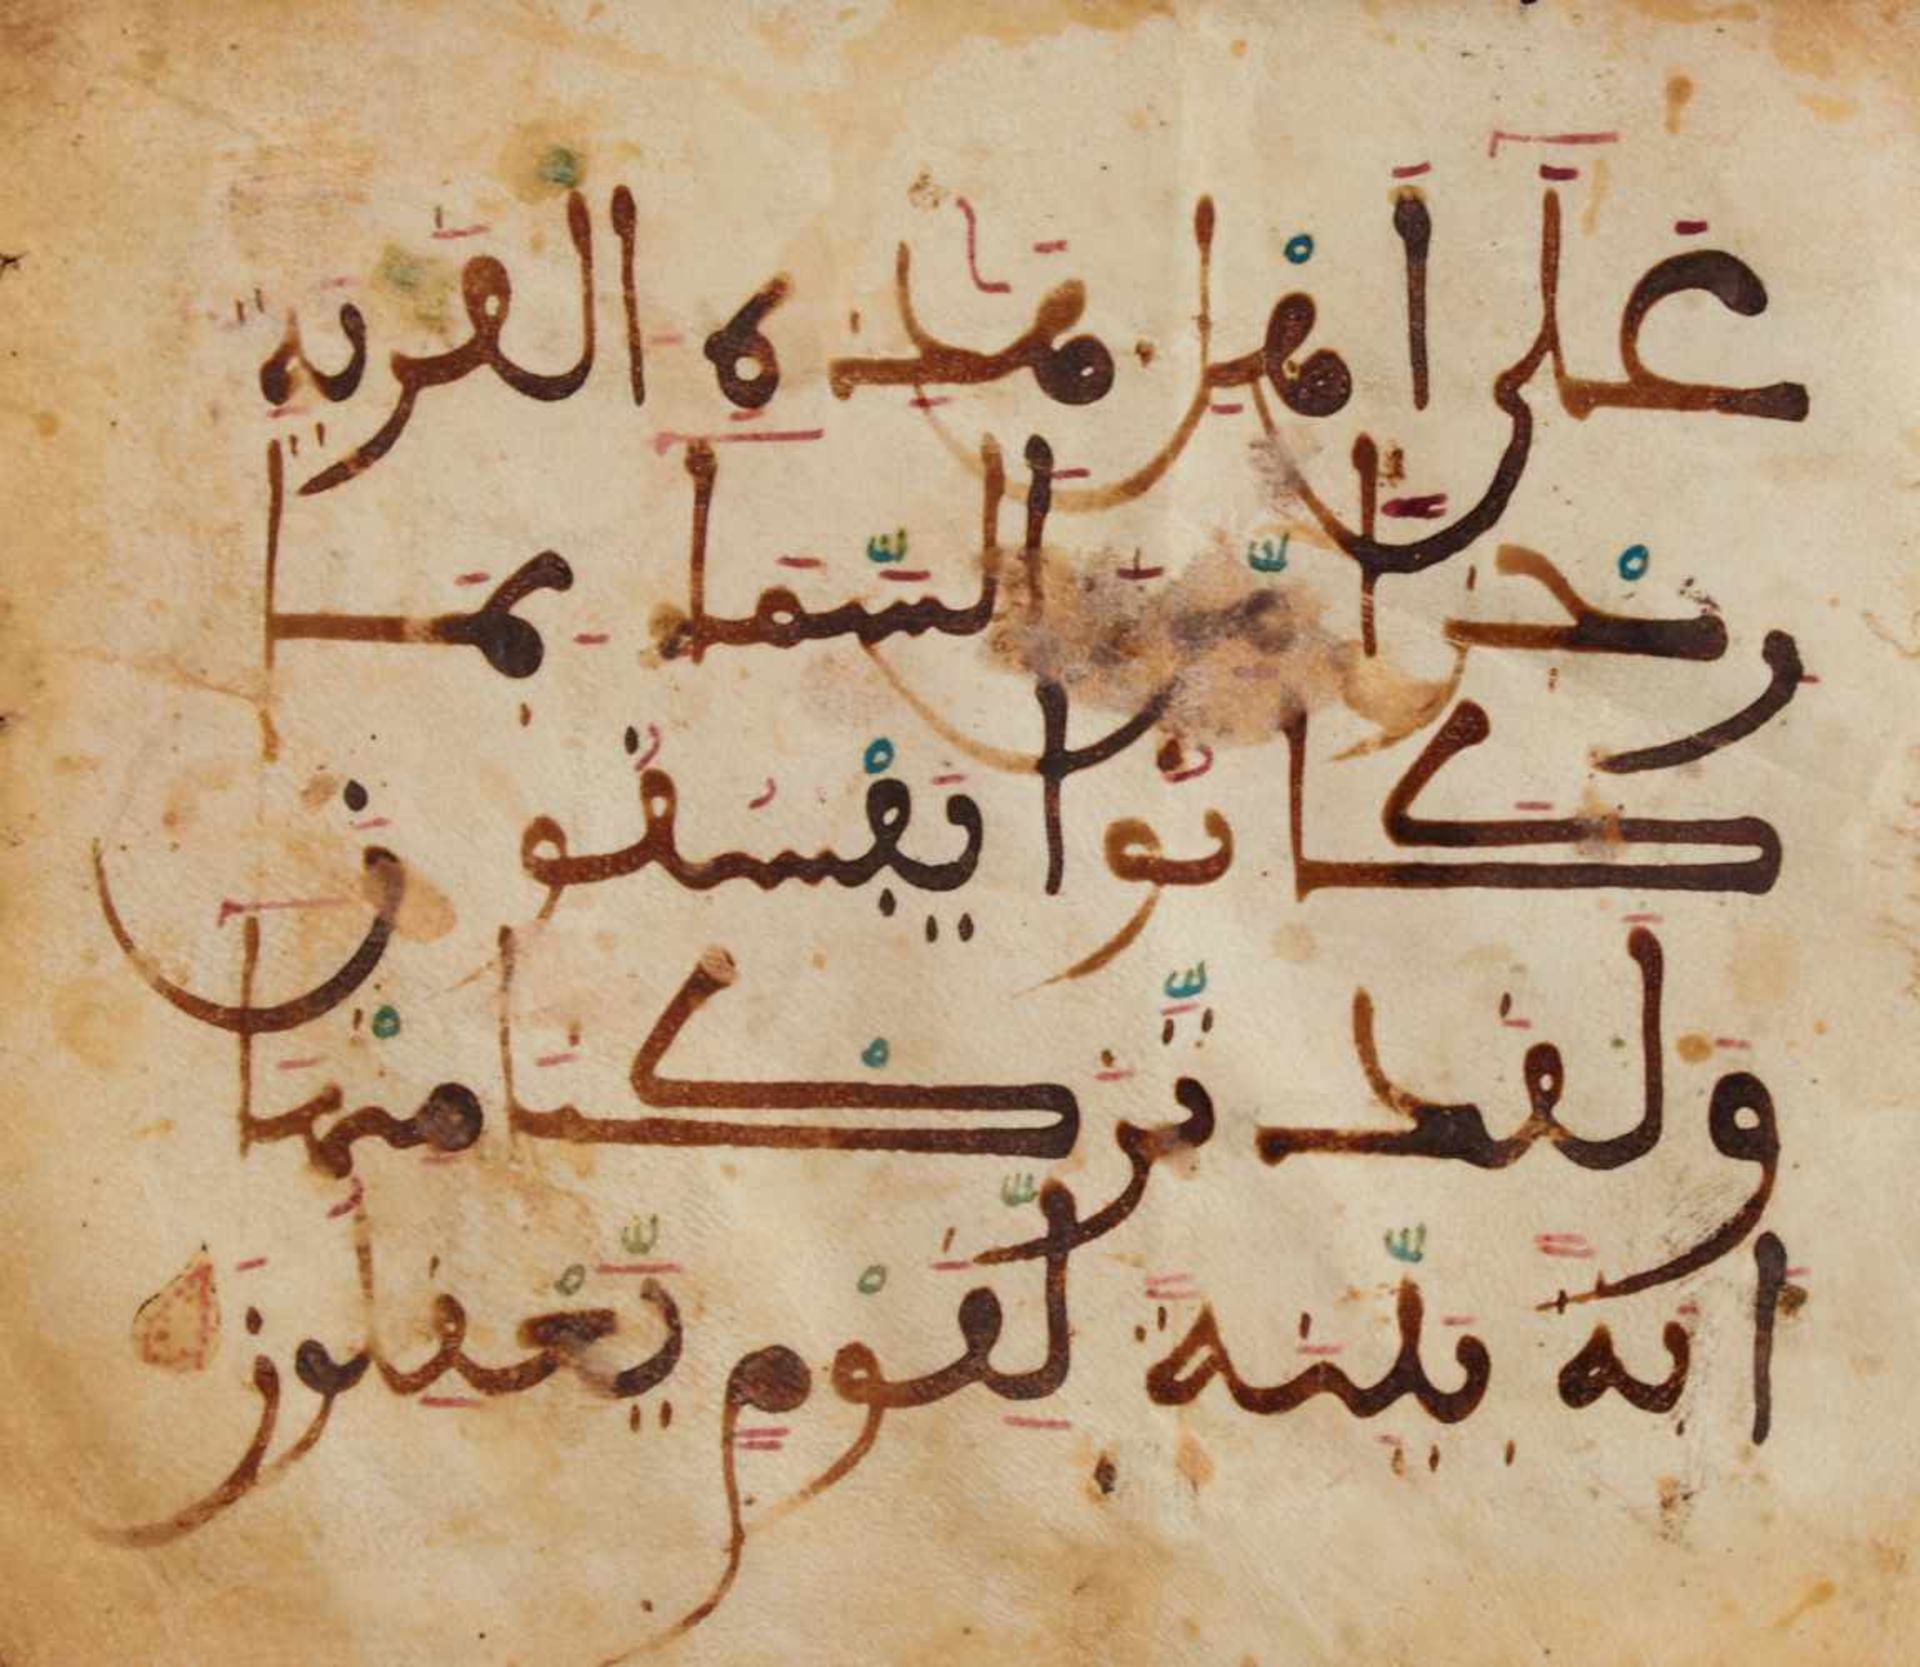 عَلَىٰٓ أَهْلِ هَٰذِهِ الْقَرْيَةِ
رِجْزًا مِّنَ السَّمَآءِ بِمَا
كَانُوا يَفْسُقُونَ
وَلَقَد تَّرَكْنَا مِنْهَآ
ءَايَةً بَيِّنَةً لِّقَوْمٍ يَّعْقِلُونَ